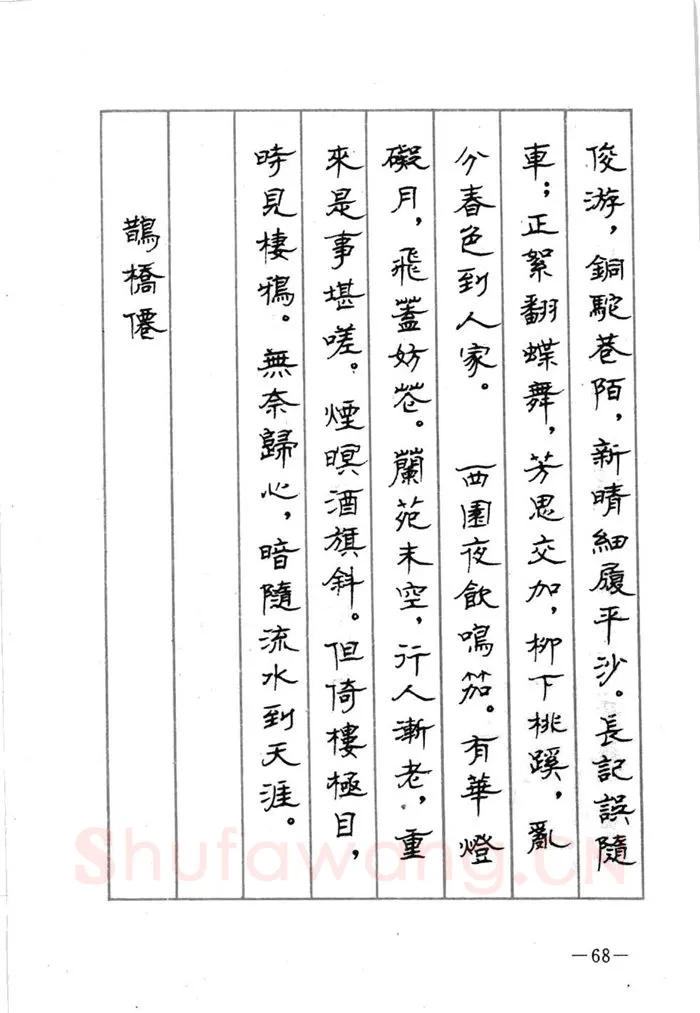 俊游，銅駝巷陌，新晴細履平沙。長記誤隨
車；正絮翻蝶舞，芳思交加，柳下桃蹊，亂
分春色到人家。　西園夜飲鳴笳。有華燈
礙月，飛蓋妨花。蘭苑未空，行人漸老，重
來是事堪嗟。煙暝酒旗斜。但倚樓極目，
時見棲鴉。無奈歸心，暗隨流水到天涯。
鵲橋僊
Shufawang.CN
—68—